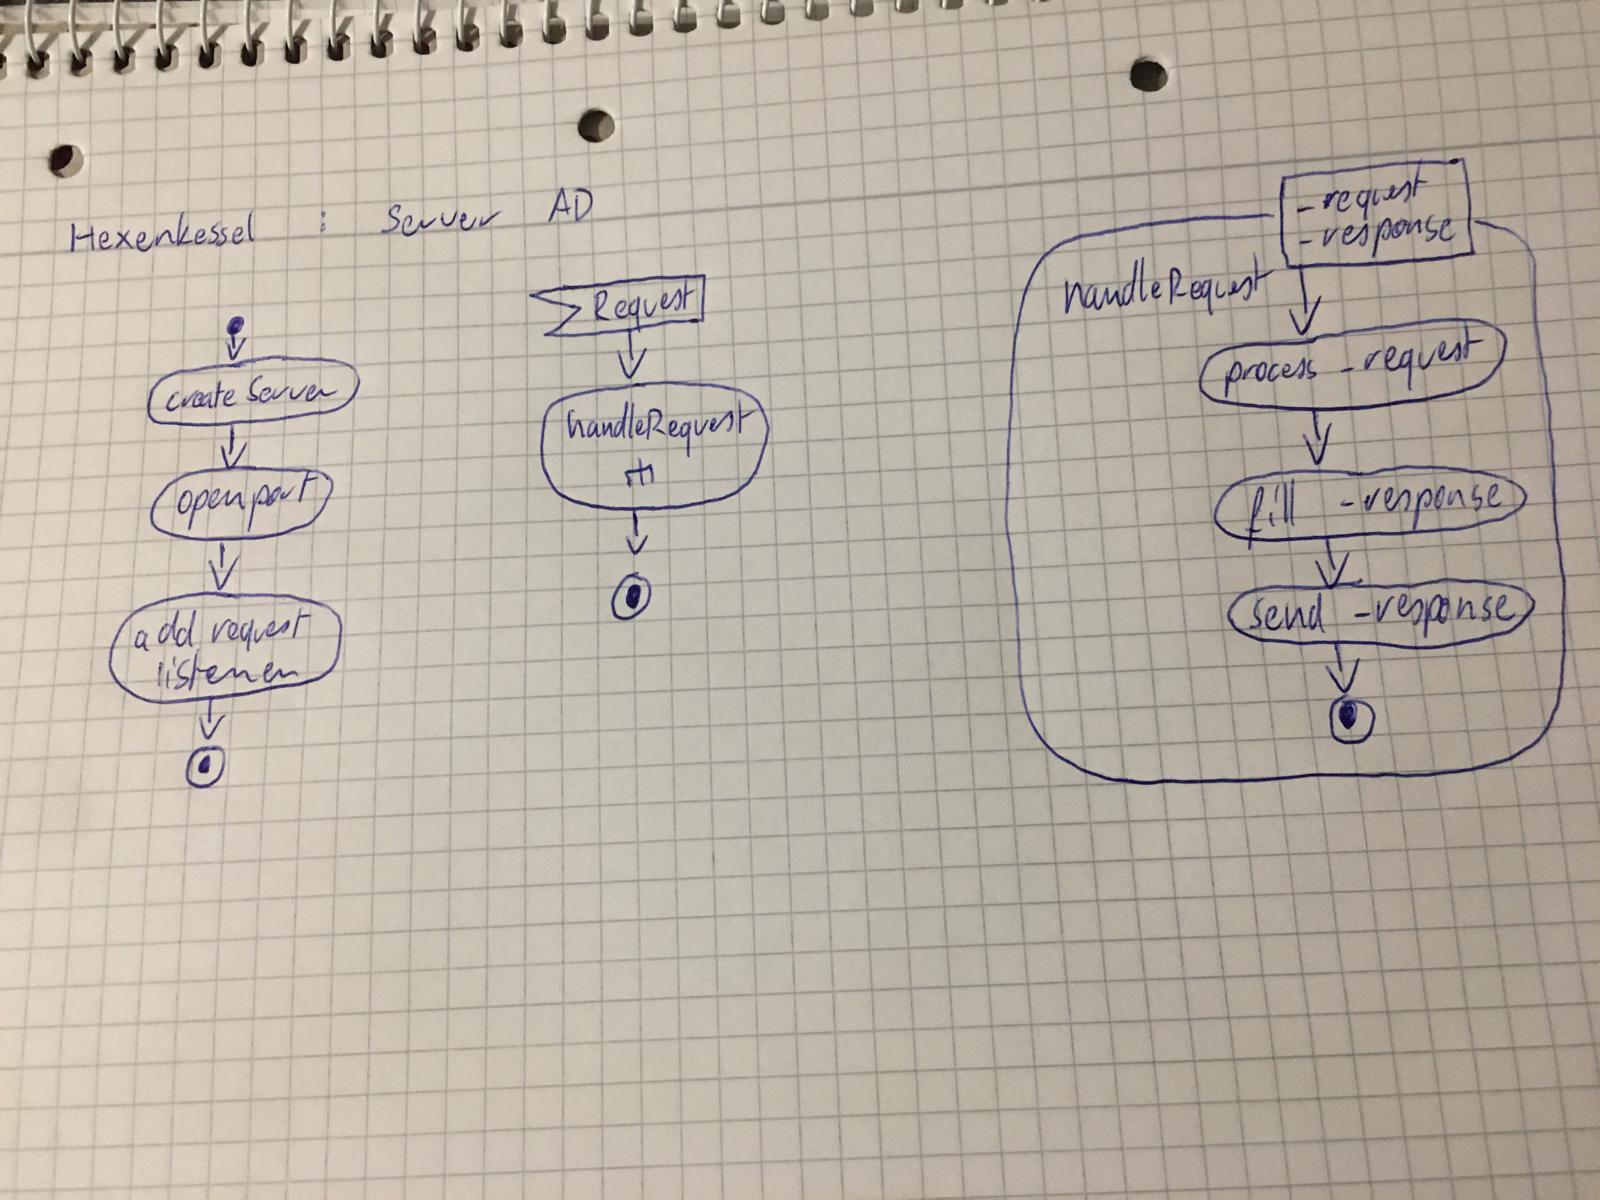 Hexenkessel : Server AD
create Server
open port
add request
listener
Request
handleRequest
_request
_response
handleRequest
process _request
fill _response
send _response